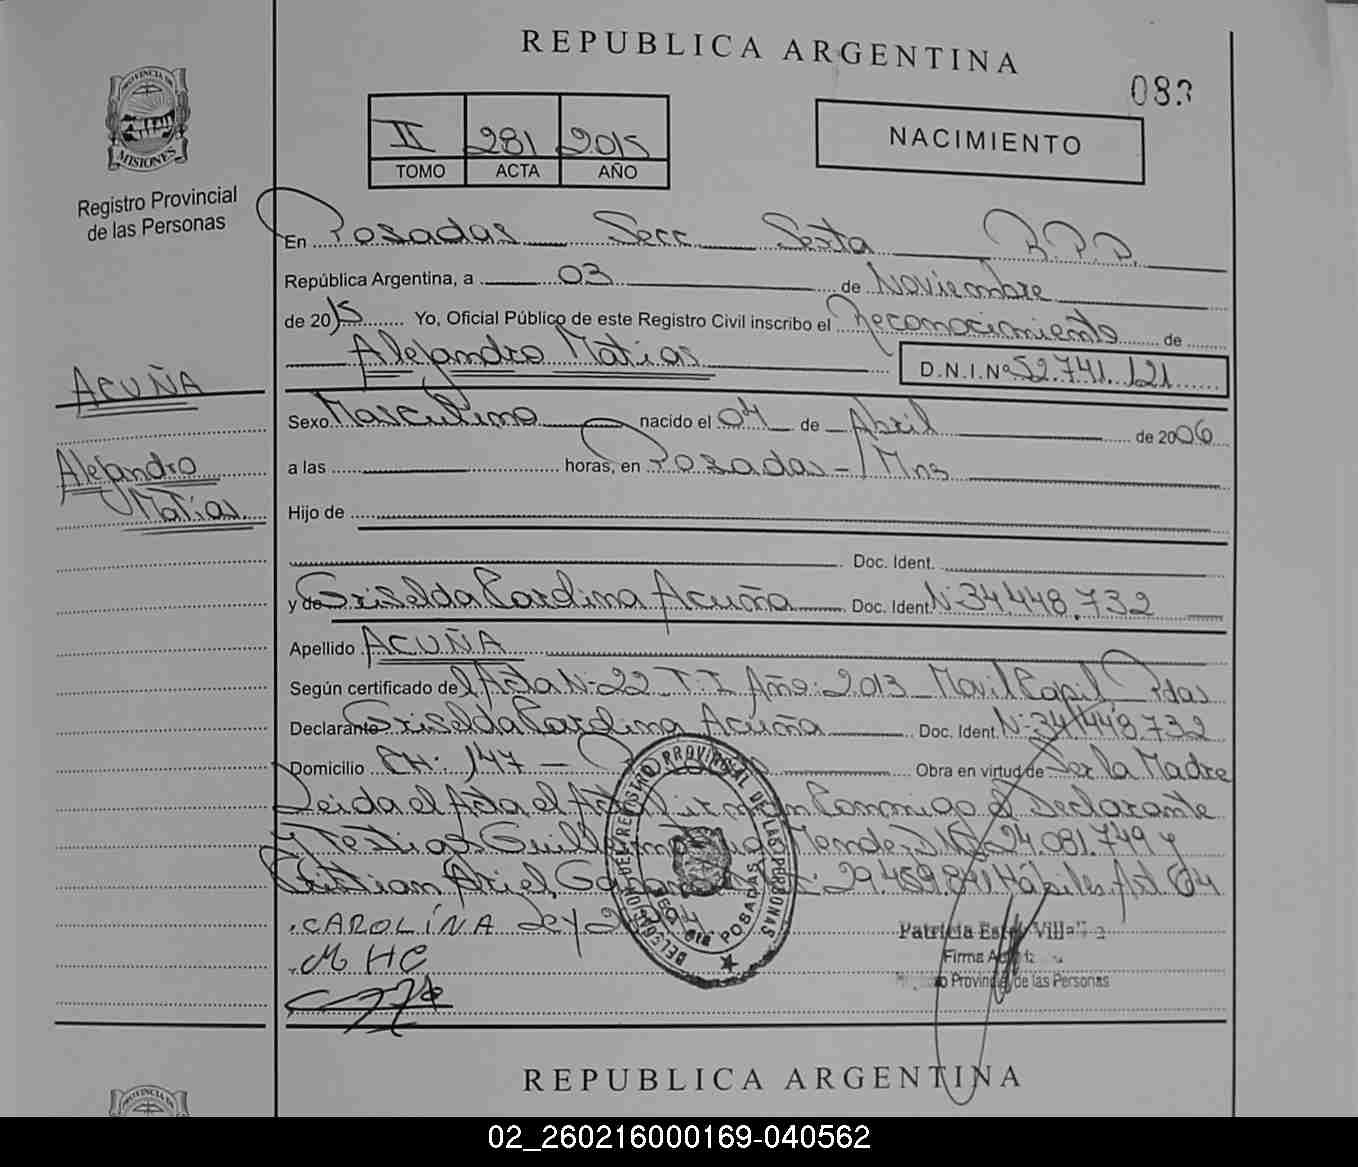 REPUBLICA ARGENTINA
083
PROVINCIA DE
MISIONES
Registro Provincial
de las Personas
II 281 2015
TOMO ACTA AÑO
NACIMIENTO
En Posadas Secc Sexta R.P.P.
República Argentina, a 03 de Noviembre
de 2015 Yo, Oficial Público de este Registro Civil inscribo el Reconocimiento de
Alejandro Matias D.N.I.Nº 52.741.121
ACUÑA
Alejandro
Matías
Sexo Masculino nacido el 04 de Abril de 2006
a las horas, en Posadas - Mns
Hijo de
Doc. Ident.
y de Griselda Carolina Acuña Doc. Ident. Nº 34.448.732
Apellido ACUÑA
Según certificado del Acta Nº 22 T. I Año: 2013 Movil Capil Pdas
Declarante Griselda Carolina Acuña Doc. Ident. Nº 34.448.732
Domicilio CH: 147 - Obra en virtud de Ser la Madre
Leida el Acta el Acta firman Conmigo el Declarante
y Testigos Guillermo Mende 24.081.749 y
Cristian Ariel Habiles Art 64
CAROLÍNA
M HC
DELEGACION DEL REGISTRO PROVINCIAL DE LAS PERSONAS
POSADAS
Patricia
Firma
Provincial de las Personas
REPUBLICA ARGENTINA
PROVINCIA DE
02_260216000169-040562